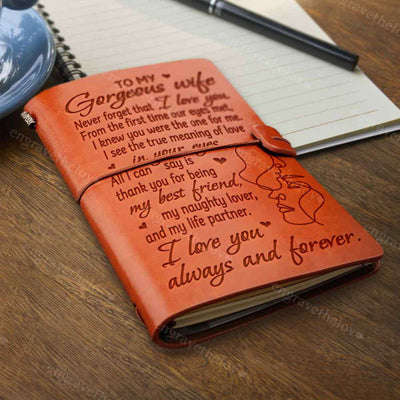 TO MY
Gorgeous wife
Never forget that I love you.
From the first time our eyes met,
I knew you were the one for me.
I see the true meaning of love
in your eyes
All I can say is
thank you for being
my best friend,
my naughty lover,
and my life partner.
I love you
always and forever.
engravethelove